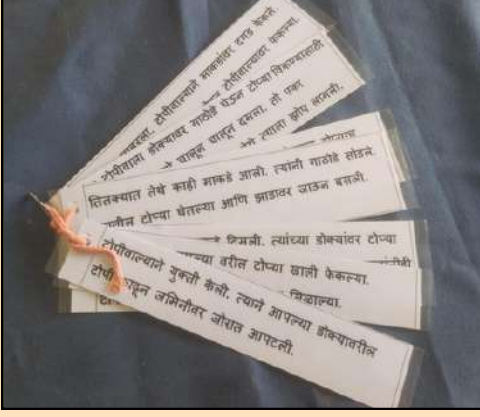 टोपीवाल्याने माकडांवर दगड फेकले.
टोपीवाल्यावर फेकल्या.
डोक्यावर गाठोडे घेऊन टोप्या विकण्यासाठी
चालून चालून दमला. तो एका
त्याला झोप लागली.
तितक्यात तेथे काही माकडे आली. त्यांनी गाठोडे सोडले.
टोप्या घेतल्या आणि झाडावर जाऊन बसली.
त्यांच्या डोक्यांवर टोप्या
वरील टोप्या खाली फेकल्या.
मिळाल्या.
टोपीवाल्याने युक्ती केली. त्याने आपल्या डोक्यावरील
टोपी काढून जमिनीवर जोरात आपटली.